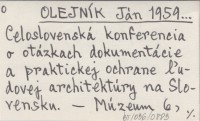 OLEJNÍK Ján 1959...
Celoslovenská konferencia
o otázkach dokumentácie
a praktickej ochrane ľu-
dovej architektúry na Slo-
vensku. — Múzeum 6,